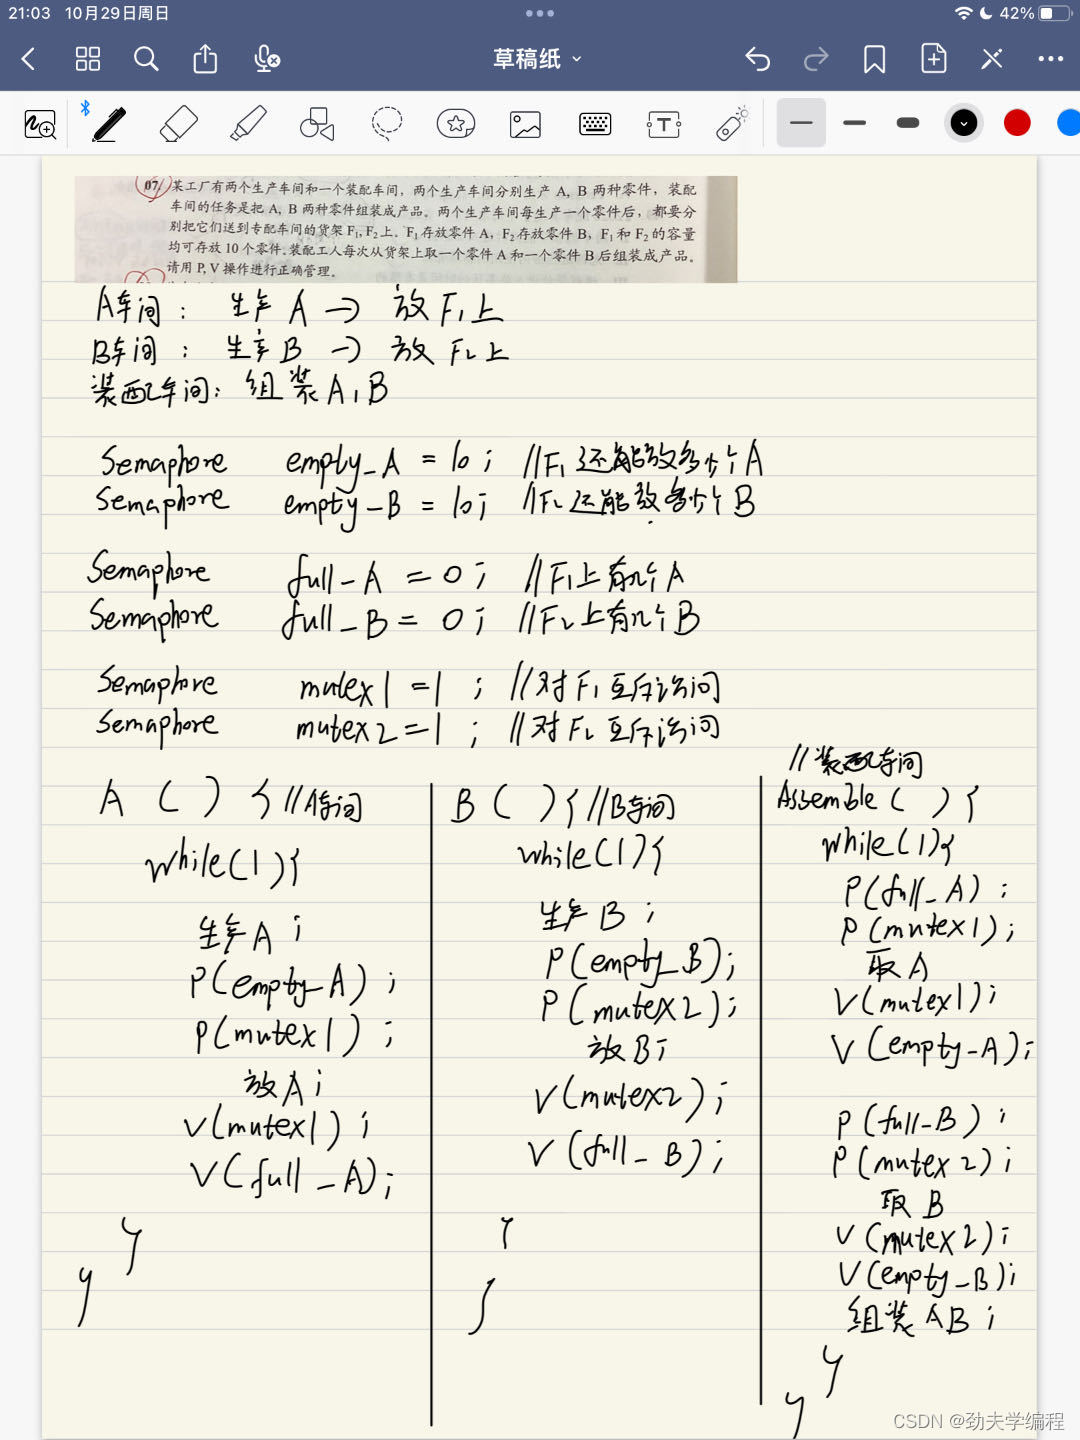 21:03 10月29日周日
42%
草稿纸
07. 某工厂有两个生产车间和一个装配车间，两个生产车间分别生产 A, B 两种零件，装配
车间的任务是把 A, B 两种零件组装成产品。两个生产车间每生产一个零件后，都要分
别把它们送到专配车间的货架 F₁, F₂ 上。F₁ 存放零件 A，F₂ 存放零件 B，F₁ 和 F₂ 的容量
均可存放 10 个零件。装配工人每次从货架上取一个零件 A 和一个零件 B 后组装成产品。
请用 P, V 操作进行正确管理。
A车间： 生产 A → 放 F₁上
B车间： 生产 B → 放 F₂上
装配车间： 组装A, B
Semaphore empty_A = 10; //F₁还能放多少个A
Semaphore empty_B = 10; //F₂还能放多少个B
Semaphore full_A = 0; //F₁上有几个A
Semaphore full_B = 0; //F₂上有几个B
Semaphore mutex1 = 1; //对F₁互斥访问
Semaphore mutex2 = 1; //对F₂互斥访问
A ( ) { //A车间
while(1){
生产A;
P(empty_A);
P(mutex1);
放A;
V(mutex1);
V(full_A);
}
}
B ( ) { //B车间
while(1){
生产B;
P(empty_B);
P(mutex2);
放B;
V(mutex2);
V(full_B);
}
}
//装配车间
Assemble ( ) {
while(1){
P(full_A);
P(mutex1);
取A
V(mutex1);
V(empty_A);
P(full_B);
P(mutex2);
取B
V(mutex2);
V(empty_B);
组装AB;
}
}
CSDN @劲夫学编程